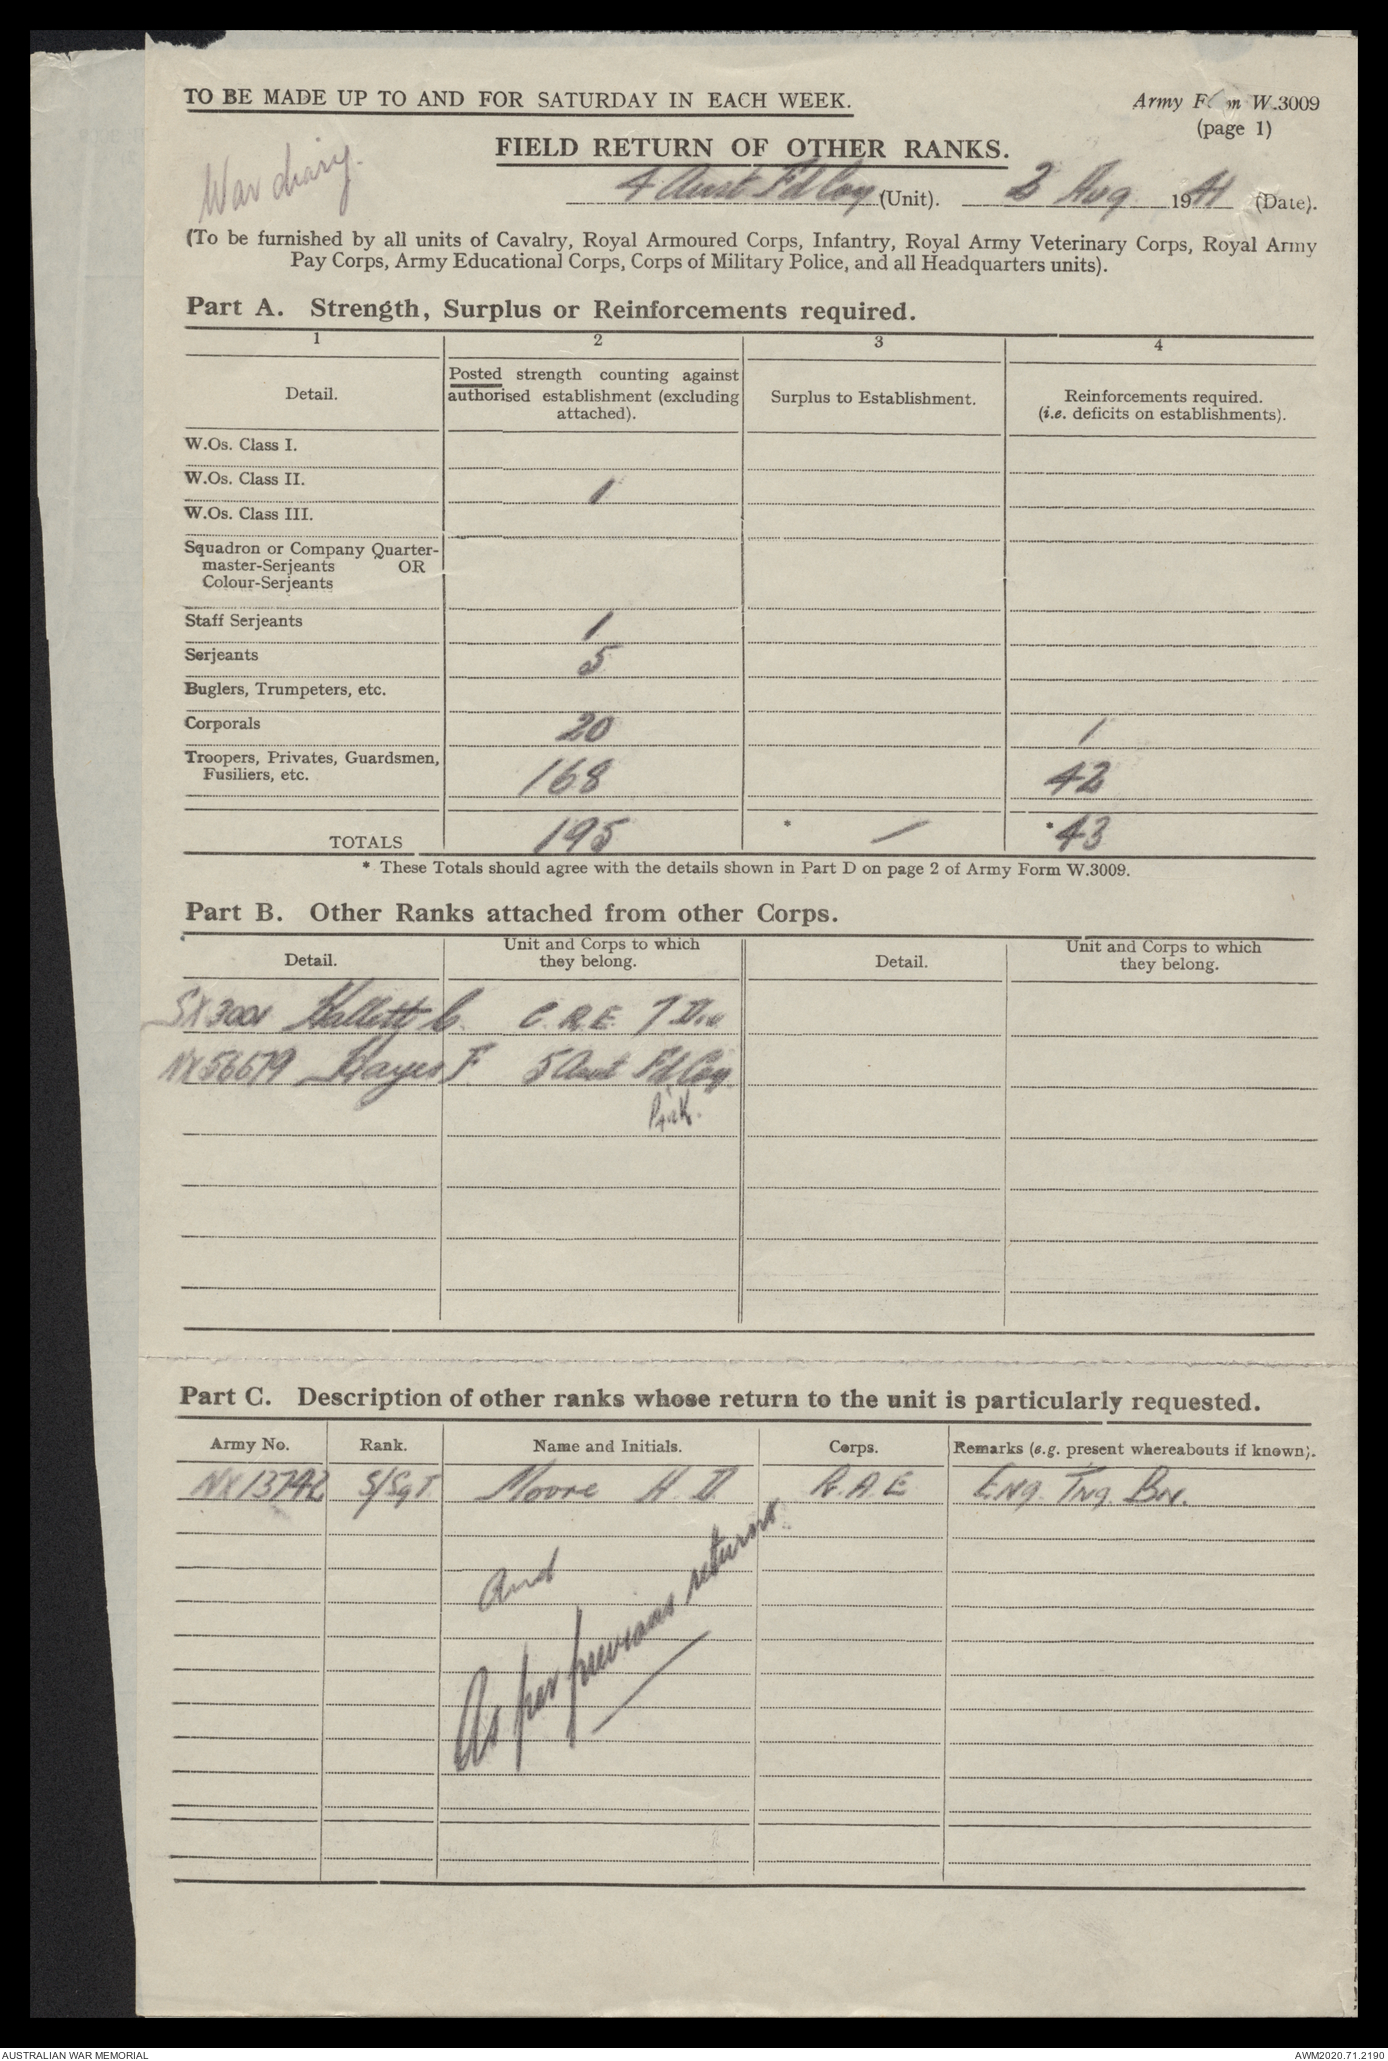 TO BE MADE UP TO AND FOR SATURDAY IN EACH WEEK.
Army Form W.3009
(page 1)
War diary.
FIELD RETURN OF OTHER RANKS.
4 Aust Fd Coy (Unit). 2 Aug 1941 (Date).
(To be furnished by all units of Cavalry, Royal Armoured Corps, Infantry, Royal Army Veterinary Corps, Royal Army
Pay Corps, Army Educational Corps, Corps of Military Police, and all Headquarters units).
Part A. Strength, Surplus or Reinforcements required.
1 2 3 4
Detail.
Posted strength counting against
authorised establishment (excluding
attached).
Surplus to Establishment.
Reinforcements required.
(i.e. deficits on establishments).
W.Os. Class I.
W.Os. Class II. 1
W.Os. Class III.
Squadron or Company Quarter-
master-Serjeants OR
Colour-Serjeants
Staff Serjeants 1
Serjeants 5
Buglers, Trumpeters, etc.
Corporals 20 1
Troopers, Privates, Guardsmen,
Fusiliers, etc. 168 42
TOTALS 195 * / * 43
* These Totals should agree with the details shown in Part D on page 2 of Army Form W.3009.
Part B. Other Ranks attached from other Corps.
Detail.
Unit and Corps to which
they belong.
Detail.
Unit and Corps to which
they belong.
SX3001 Hallett C. C.R.E. 7 Div
NX56679 Hayes F. 5 Aust Fd Coy
Park.
Part C. Description of other ranks whose return to the unit is particularly requested.
Army No. Rank. Name and Initials. Corps. Remarks (e.g. present whereabouts if known).
NX13742 S/Sgt Moore H D R.A.E Eng. Tng. Bn.
And
As per previous returns.
AUSTRALIAN WAR MEMORIAL
AWM2020.71.2190